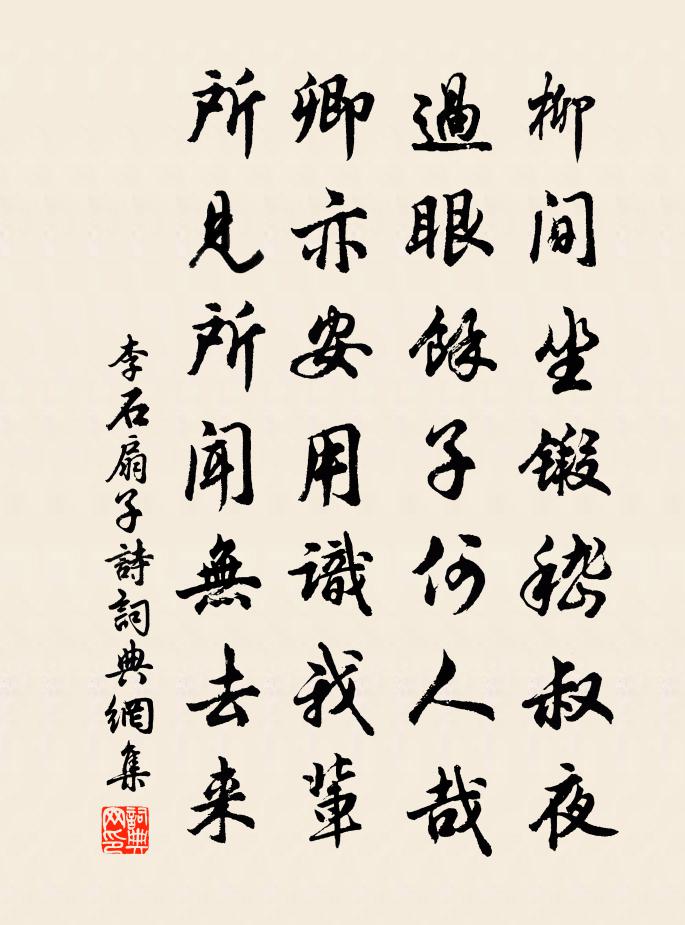 柳間坐鍛嵇叔夜
過眼餘子何人哉
卿亦安用識我輩
所見所聞無去来
李石扇子詩詞典網集
詞典網印